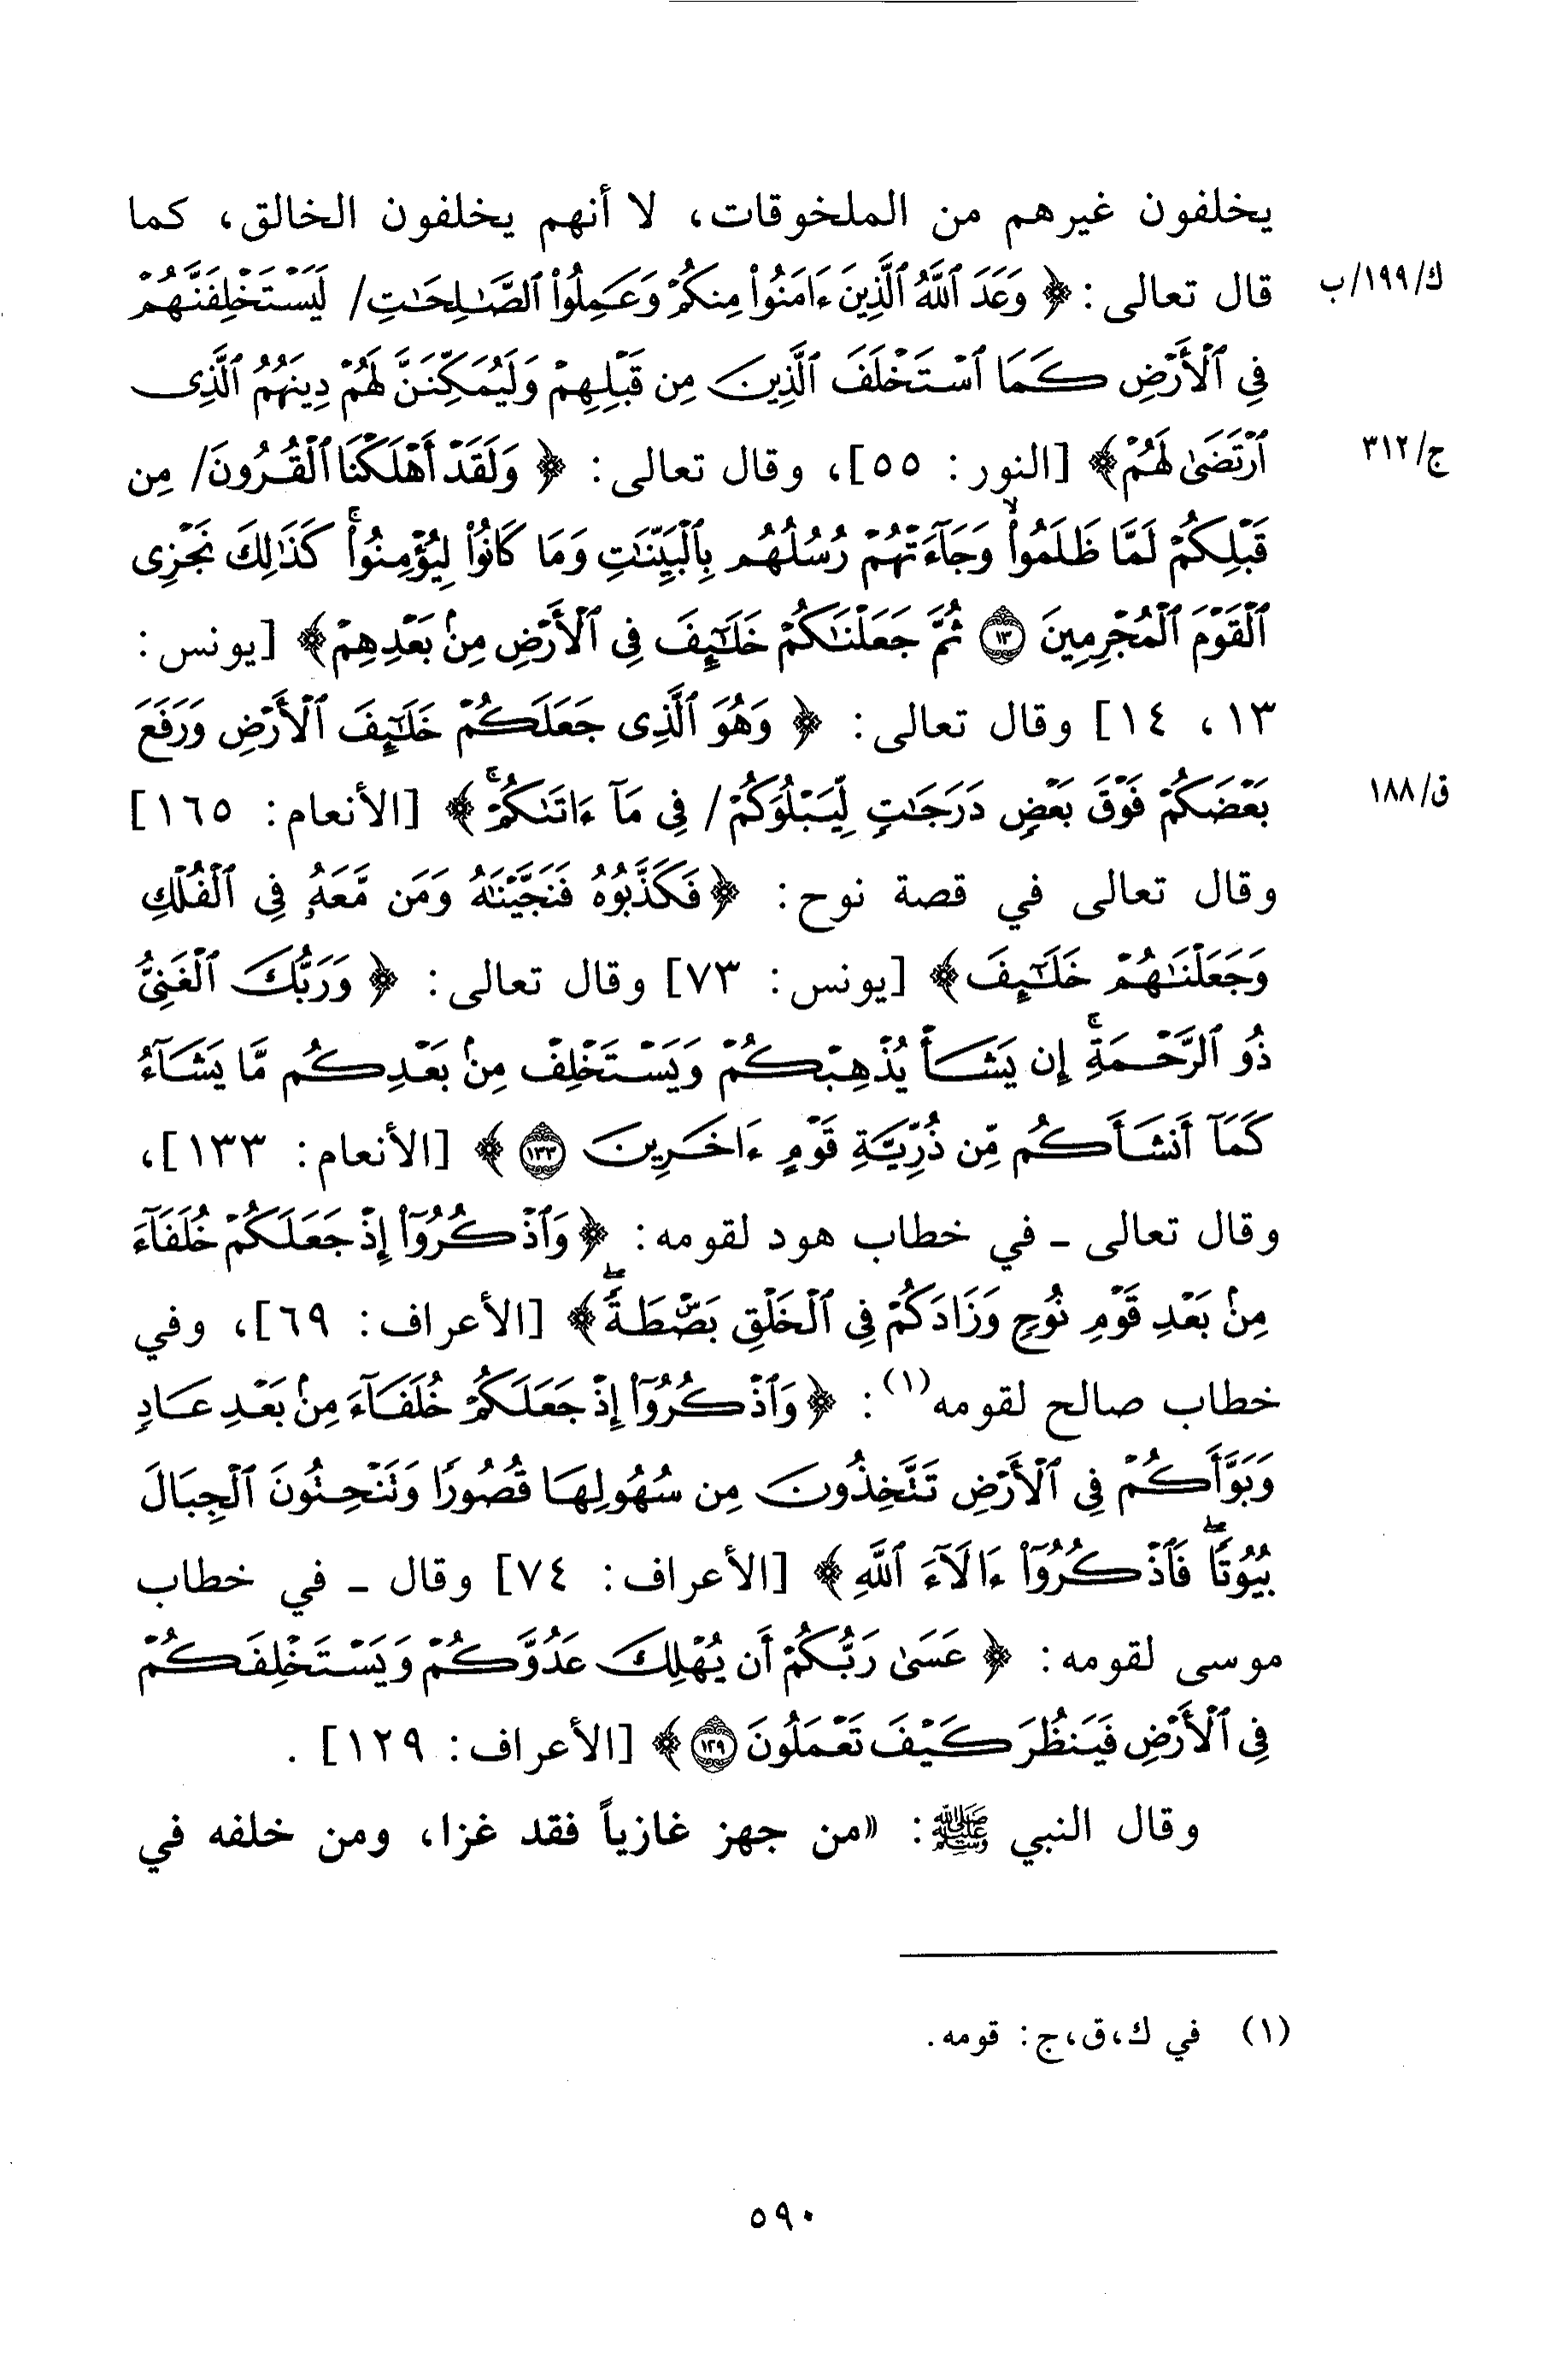 يخلفون غيرهم من الملخوقات، لا أنهم يخلفون الخالق، كما
قال تعالى: ﴿ وَعَدَ ٱللَّهُ ٱلَّذِينَ ءَامَنُوا۟ مِنكُمْ وَعَمِلُوا۟ ٱلصَّـٰلِحَـٰتِ/ لَيَسْتَخْلِفَنَّهُمْ
ك/١٩٩/ب
فِى ٱلْأَرْضِ كَمَا ٱسْتَخْلَفَ ٱلَّذِينَ مِن قَبْلِهِمْ وَلَيُمَكِّنَنَّ لَهُمْ دِينَهُمُ ٱلَّذِى
ٱرْتَضَىٰ لَهُمْ﴾ [النور: ٥٥]، وقال تعالى: ﴿ وَلَقَدْ أَهْلَكْنَا ٱلْقُرُونَ/ مِن
ج/٣١٢
قَبْلِكُمْ لَمَّا ظَلَمُوا۟ ۙ وَجَآءَتْهُمْ رُسُلُهُم بِٱلْبَيِّنَـٰتِ وَمَا كَانُوا۟ لِيُؤْمِنُوا۟ ۚ كَذَٰلِكَ نَجْزِى
ٱلْقَوْمَ ٱلْمُجْرِمِينَ ١٣ ثُمَّ جَعَلْنَـٰكُمْ خَلَـٰٓئِفَ فِى ٱلْأَرْضِ مِنۢ بَعْدِهِمْ﴾ [يونس:
١٣، ١٤] وقال تعالى: ﴿ وَهُوَ ٱلَّذِى جَعَلَكُمْ خَلَـٰٓئِفَ ٱلْأَرْضِ وَرَفَعَ
بَعْضَكُمْ فَوْقَ بَعْضٍ دَرَجَـٰتٍ لِّيَبْلُوَكُمْ/ فِى مَآ ءَاتَىٰكُمْ ۚ ﴾ [الأنعام: ١٦٥]
ق/١٨٨
وقال تعالى في قصة نوح: ﴿فَكَذَّبُوهُ فَنَجَّيْنَـٰهُ وَمَن مَّعَهُۥ فِى ٱلْفُلْكِ
وَجَعَلْنَـٰهُمْ خَلَـٰٓئِفَ﴾ [يونس: ٧٣] وقال تعالى: ﴿ وَرَبُّكَ ٱلْغَنِىُّ
ذُو ٱلرَّحْمَةِ ۚ إِن يَشَأْ يُذْهِبْكُمْ وَيَسْتَخْلِفْ مِنۢ بَعْدِكُم مَّا يَشَآءُ
كَمَآ أَنشَأَكُم مِّن ذُرِّيَّةِ قَوْمٍ ءَاخَرِينَ ١٣٣ ﴾ [الأنعام: ١٣٣]،
وقال تعالى ـ في خطاب هود لقومه: ﴿وَٱذْكُرُوٓا۟ إِذْ جَعَلَكُمْ خُلَفَآءَ
مِنۢ بَعْدِ قَوْمِ نُوحٍ وَزَادَكُمْ فِى ٱلْخَلْقِ بَصْۜطَةً ۖ﴾ [الأعراف: ٦٩]، وفي
خطاب صالح لقومه(١): ﴿وَٱذْكُرُوٓا۟ إِذْ جَعَلَكُمْ خُلَفَآءَ مِنۢ بَعْدِ عَادٍ
وَبَوَّأَكُمْ فِى ٱلْأَرْضِ تَتَّخِذُونَ مِن سُهُولِهَا قُصُورًا وَتَنْحِتُونَ ٱلْجِبَالَ
بُيُوتًا ۖ فَٱذْكُرُوٓا۟ ءَالَآءَ ٱللَّهِ ﴾ [الأعراف: ٧٤] وقال ـ في خطاب
موسى لقومه: ﴿ عَسَىٰ رَبُّكُمْ أَن يُهْلِكَ عَدُوَّكُمْ وَيَسْتَخْلِفَكُمْ
فِى ٱلْأَرْضِ فَيَنظُرَ كَيْفَ تَعْمَلُونَ ١٢٩ ﴾ [الأعراف: ١٢٩] .
وقال النبي ﷺ: «من جهز غازياً فقد غزا، ومن خلفه في
(١) في ك،ق،ج: قومه.
٥٩٠